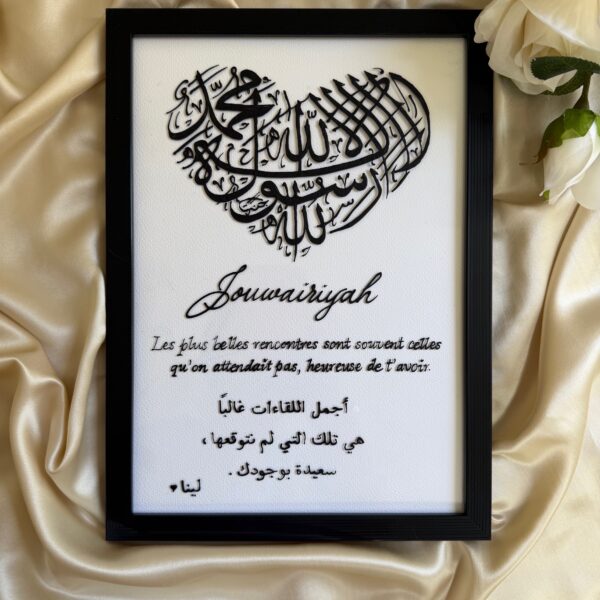 لا إله إلا الله محمد رسول الله
Jouwairiyah
Les plus belles rencontres sont souvent celles
qu'on attendait pas, heureuse de t'avoir.
أجمل اللقاءات غالبًا
هي تلك التي لم نتوقعها،
سعيدة بوجودك.
لينا♥